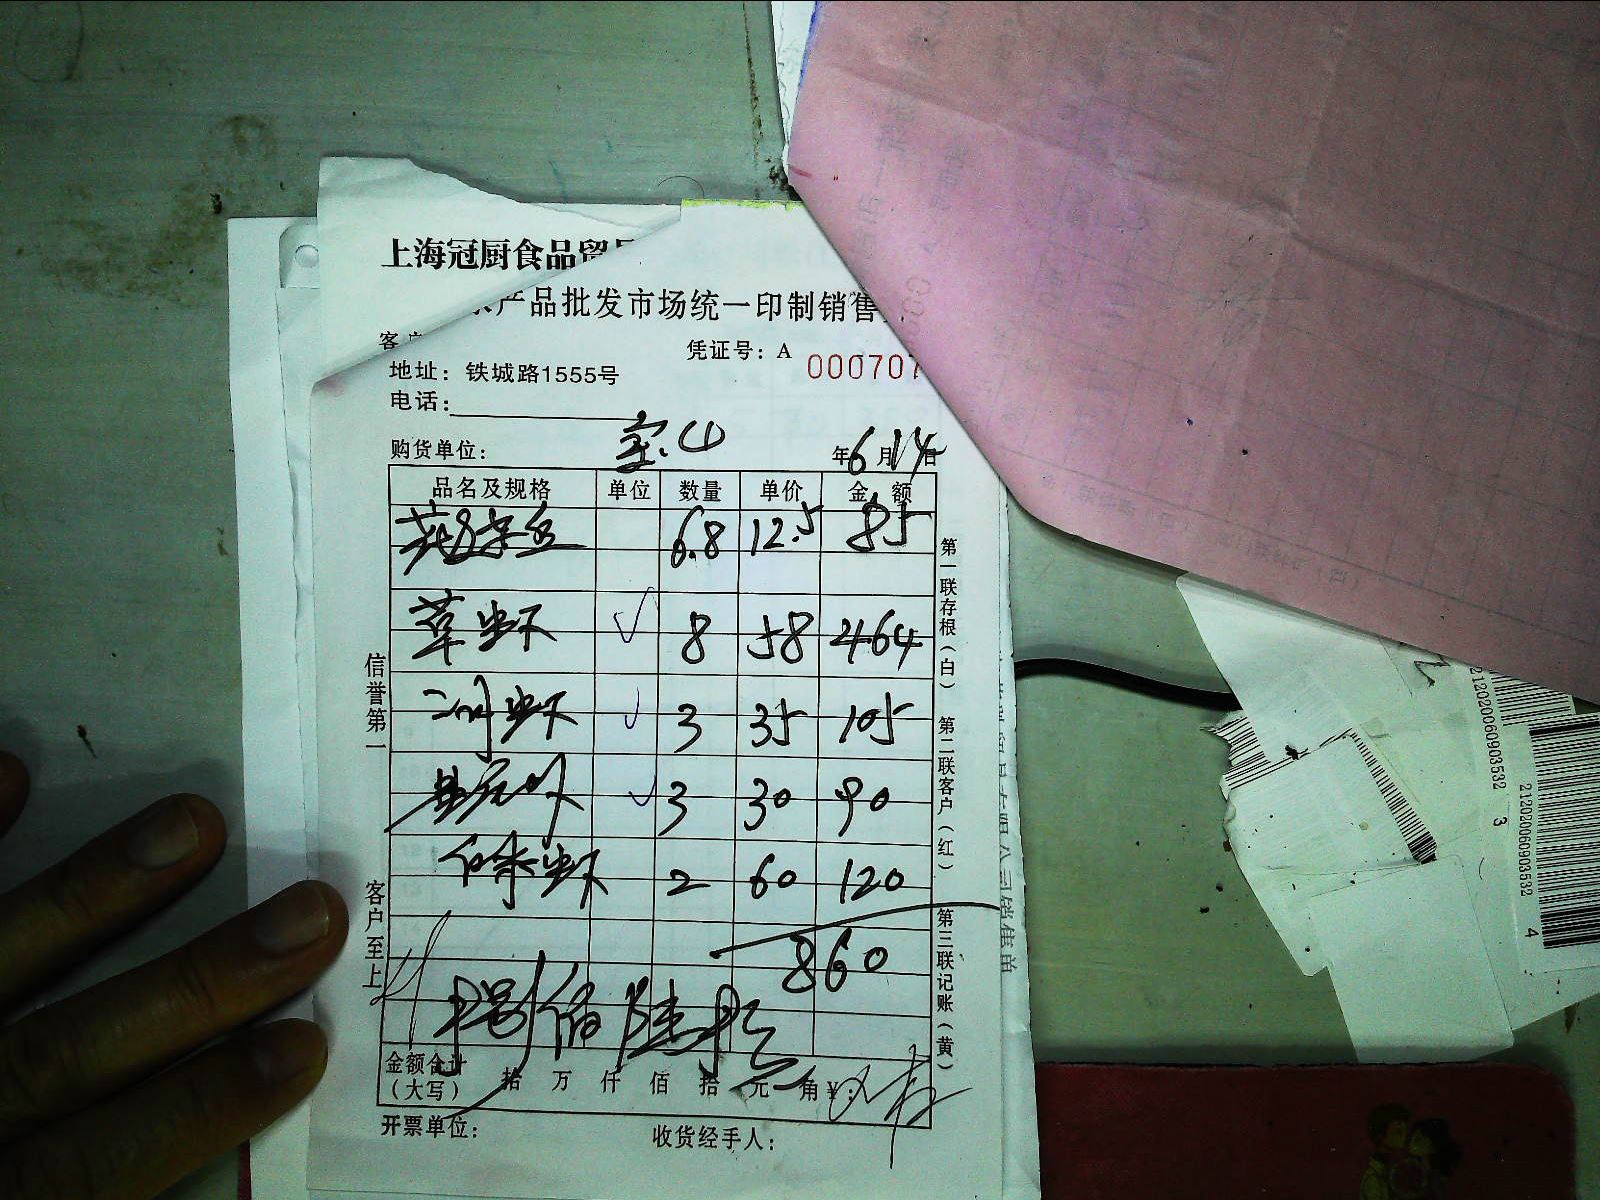 上海冠厨食品贸
产品批发市场统一印制销售
客户
凭证号：A 000707
地址：铁城路1555号
电话：
购货单位： 宝山 年6月14日
品名及规格 单位 数量 单价 金额
6.8 12.5 85
草虾 √ 8 58 464
虾 √ 3 35 105
√ 3 30 90
虾 2 60 120
860
捌佰陆拾元
金额合计（大写） 拾 万 仟 佰 拾 元 角 ¥：
开票单位： 收货经手人：
信誉第一 客户至上
第一联存根（白） 第二联客户（红） 第三联记账（黄）
2120200609035323
2120200609035324